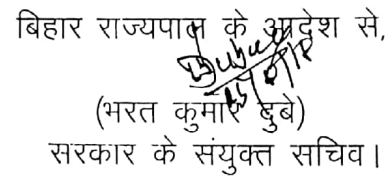 बिहार राज्यपाल के आदेश से,
(भरत कुमार दुबे)
सरकार के संयुक्त सचिव।